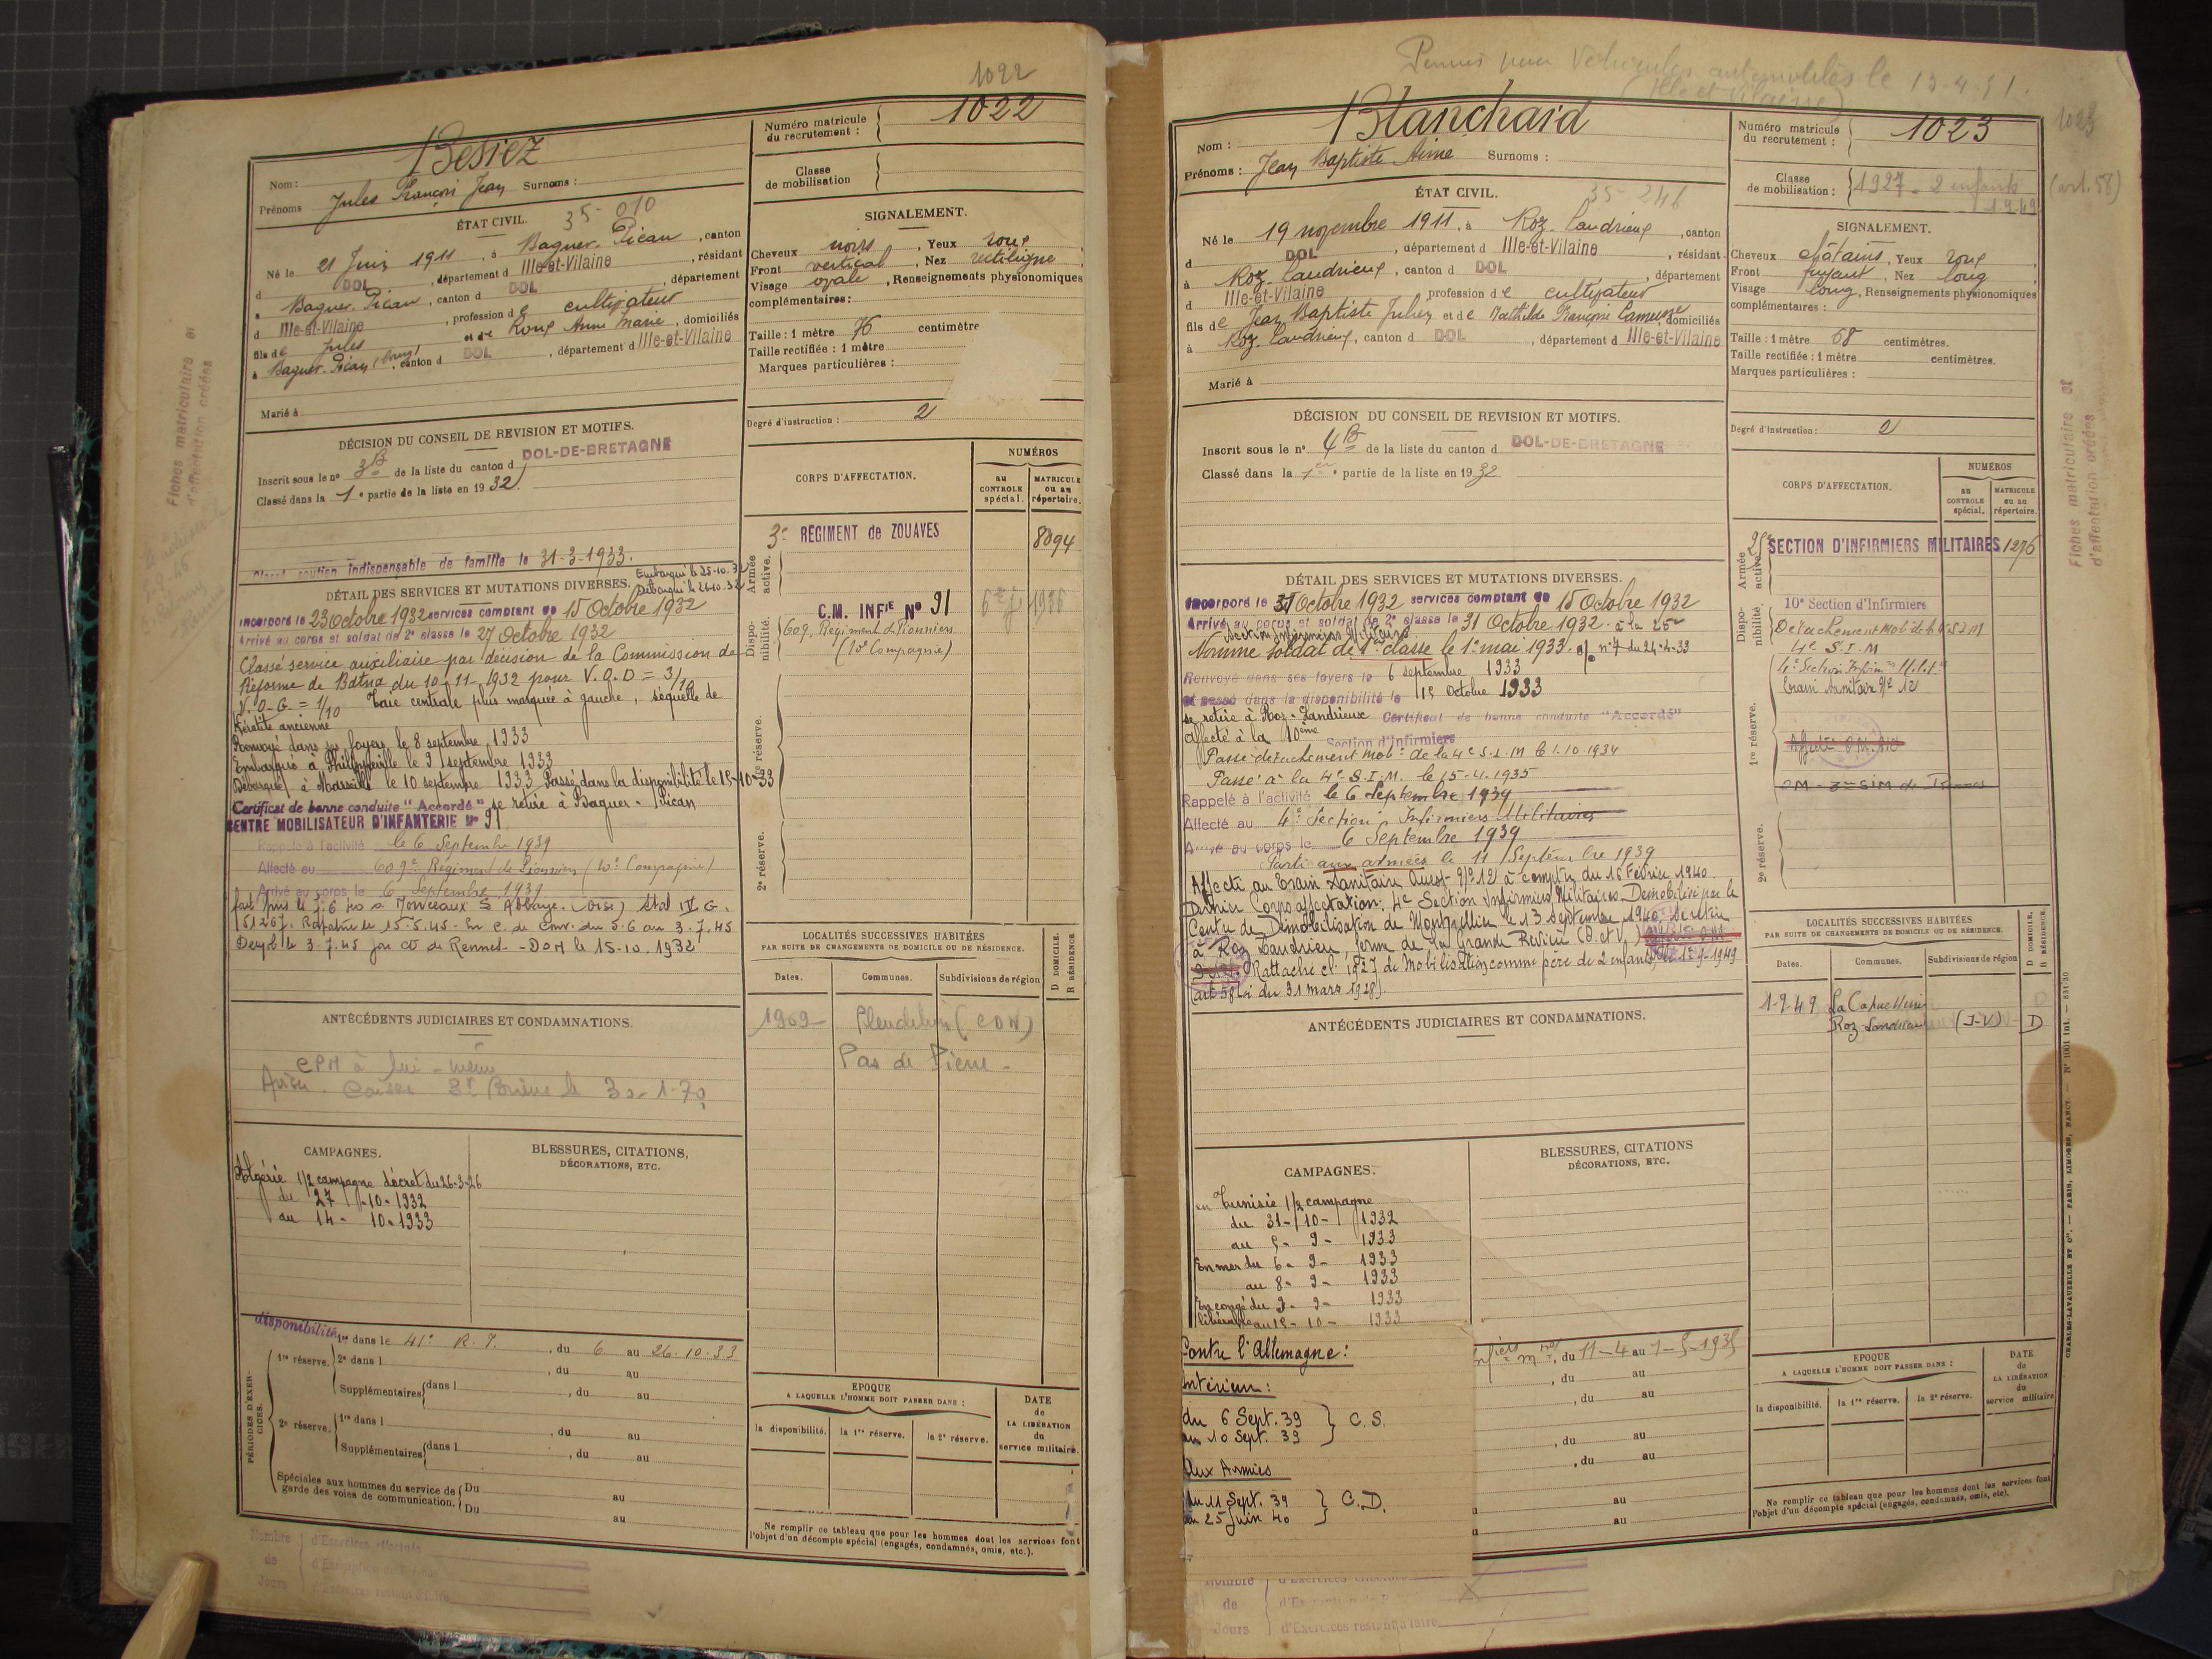 1022
Besiez
Nom :
Prénoms Jules François Jean Surnoms :
Numéro matricule du recrutement : 1022
Classe de mobilisation
ÉTAT CIVIL.
35-010
Né le 21 Juin 1911, à Baguer-Pican, canton
d DOL, département d Ille-et-Vilaine, résidant
à Baguer-Pican, canton d DOL, département
d Ille-et-Vilaine, profession de cultivateur
fils de Jules et de Roux Anne Marie, domiciliés
à Baguer-Pican (bourg), canton d DOL, département d Ille-et-Vilaine
Marié à
SIGNALEMENT.
Cheveux noirs, Yeux roux
Front vertical, Nez rectiligne
Visage ovale, Renseignements physionomiques
complémentaires :
Taille : 1 mètre 76 centimètre
Taille rectifiée : 1 mètre
Marques particulières :
Degré d'instruction : 2
DÉCISION DU CONSEIL DE REVISION ET MOTIFS.
Inscrit sous le no 3B de la liste du canton d DOL-DE-BRETAGNE
Classé dans la 1e partie de la liste en 1932
Classé soutien indispensable de famille le 31-3-1933.
DÉTAIL DES SERVICES ET MUTATIONS DIVERSES.
Embarqué le 25-10-32
Débarqué le 26-10-32
Incorporé le 23 octobre 1932 services comptant du 15 Octobre 1932
Arrivé au corps et soldat de 2e classe le 27 Octobre 1932
Classé service auxiliaire par décision de la Commission de
Réforme de Batna du 10-11-1932 pour V.O.D = 3/10
V.O-G = 1/10 Taie centrale plus marquée à gauche, séquelle de
Kératite ancienne
Renvoyé dans ses foyers le 8 septembre 1933
Embarqué à Philippeville le 9 septembre 1933
Débarqué à Marseille le 10 septembre 1933 Passé dans la disponibilité le 15-10-33
Certificat de bonne conduite "Accordé" se retire à Baguer-Pican
CENTRE MOBILISATEUR D'INFANTERIE No 91
Rappelé à l'activité le 6 Septembre 1939
Affecté au 609e Régiment de Pionniers (10e Compagnie)
Arrivé au corps le 6 Septembre 1939
fait pris le 9.6.40 à Abbaye (Oise) Stal IV G.
151267. Rapatrié le 15.5.45. En C. de Conv. du 5.6 au 3.7.45
Demob le 3.7.45 par CD de Rennes - DOM le 15-10-1932
CORPS D'AFFECTATION.
NUMÉROS
au CONTROLE spécial.
MATRICULE ou au répertoire.
Armée active.
3e RÉGIMENT de ZOUAVES 8094
Disponibilité.
C.M. INFIE No 91
609e Régiment de Pionniers
(10e Compagnie)
1re réserve.
2e réserve.
LOCALITÉS SUCCESSIVES HABITÉES
PAR SUITE DE CHANGEMENTS DE DOMICILE OU DE RÉSIDENCE.
D DOMICILE.
R RÉSIDENCE
Dates. Communes. Subdivisions de région
1969 (CDN)
Pas de Pierre
ANTÉCÉDENTS JUDICIAIRES ET CONDAMNATIONS.
CPM à lui-même
le 30-1-70
CAMPAGNES.
Algérie 1/2 campagne décret du 26-3-26
du 27-10-1932
au 14-10-1933
BLESSURES, CITATIONS,
DÉCORATIONS, ETC.
PÉRIODES D'EXERCICES.
disponibilité
1re dans le 41e R.I., du 6 au 26.10.33
1re réserve. 2e dans l , du au
Supplémentaires dans l , du au
2e réserve. 1re dans l , du au
Supplémentaires dans l , du au
Spéciales aux hommes du service de garde des voies de communication. Du au
Du au
EPOQUE
A LAQUELLE L'HOMME DOIT PASSER DANS :
la disponibilité. la 1re réserve. la 2e réserve.
DATE de LA LIBÉRATION du service militaire.
Ne remplir ce tableau que pour les hommes dont les services font
l'objet d'un décompte spécial (engagés, condamnés, omis, etc.).
Nombre de Jours
d'Exercices effectués
d'Exercices restant à faire
Fiches matriculaire et
d'affectation créées
Permis pour Véhicules automobiles le 13-4-31.
(Ille et Vilaine)
1023
Nom : Blanchard
Prénoms : Jean Baptiste Aimé Surnoms :
Numéro matricule du recrutement : 1023
Classe de mobilisation : 1927 - 2 enfants (art. 58)
1.9.49
ÉTAT CIVIL.
35-246
Né le 19 novembre 1911, à Roz-Landrieux, canton
d DOL, département d Ille-et-Vilaine, résidant
à Roz-Landrieux, canton d DOL, département
d Ille-et-Vilaine, profession de cultivateur
fils de Jean Baptiste Julien et de Mathilde Françoise Lameusse, domiciliés
à Roz-Landrieux, canton d DOL, département d Ille-et-Vilaine
Marié à
SIGNALEMENT.
Cheveux châtains, Yeux roux
Front fuyant, Nez long
Visage long, Renseignements physionomiques
complémentaires :
Taille : 1 mètre 68 centimètres.
Taille rectifiée : 1 mètre centimètres.
Marques particulières :
Degré d'instruction : 2
DÉCISION DU CONSEIL DE REVISION ET MOTIFS.
Inscrit sous le no 4B de la liste du canton d DOL-DE-BRETAGNE
Classé dans la 1ere partie de la liste en 1932
DÉTAIL DES SERVICES ET MUTATIONS DIVERSES.
Incorporé le 31 Octobre 1932 services comptant du 15 Octobre 1932
Arrivé au corps et soldat de 2e classe le 31 Octobre 1932. à la 25e
Section Infirmiers Militaires
Nommé soldat de 1re classe le 1er mai 1933. o/ no 7 du 24-4-33
Renvoyé dans ses foyers le 6 septembre 1933
et passé dans la disponibilité le 15 Octobre 1933
se retire à Roz-Landrieux Certificat de bonne conduite "Accordé"
affecté à la 10ème Section d'Infirmiers
Passé détachement Mob. de la 4e S.I.M le 1.10.1934
Passé à la 4e S.I.M. le 15-4-1935
Rappelé à l'activité le 6 Septembre 1939
Affecté au 4e Section Infirmiers Militaires
Arrivé au corps le 6 Septembre 1939
Parti aux armées le 11 Septembre 1939
Affecté au Train Sanitaire Ouest-No 12 à compter du 16 Février 1940.
Dernier Corps affectation: 4e Section Infirmiers Militaires. Démobilisé par le
Centre de Démobilisation de Montpellier le 13 Septembre 1940. Se retire
à Roz Landrieu, ferme de la Grande Rivière (I. et V.)
Rattaché cl. 1927 de Mobilisation comme père de 2 enfants, le 1er-9-1949
(art 58 Loi du 31 mars 1928).
CORPS D'AFFECTATION.
NUMÉROS
au CONTROLE spécial.
MATRICULE ou au répertoire.
Armée active.
25e SECTION D'INFIRMIERS MILITAIRES 1276
Disponibilité.
10e Section d'Infirmiers
Détachement Mob de la 4e S I M
4e S.I.M
1re réserve.
4e Section Infirm
Train Sanitaire No 12
2e réserve.
LOCALITÉS SUCCESSIVES HABITÉES
PAR SUITE DE CHANGEMENTS DE DOMICILE OU DE RÉSIDENCE.
D DOMICILE.
R RÉSIDENCE.
Dates. Communes. Subdivisions de région
1-9-49 La Capuchinie
Roz-Landrieux (I-V) D
ANTÉCÉDENTS JUDICIAIRES ET CONDAMNATIONS.
CAMPAGNES.
en Tunisie 1/2 campagne
du 31-10-1932
au 5-9-1933
En mer du 6-9-1933
au 8-9-1933
En congé du 9-9-1933
libérable au 15-10-1933
BLESSURES, CITATIONS
DÉCORATIONS, ETC.
Contre l'Allemagne :
Intérieur :
du 6 Sept. 39
au 10 Sept. 39 } C.S.
Aux Armées
du 11 Sept. 39
au 25 Juin 40 } C.D.
, du 11-4 au 1-5-1935
, du au
, du au
, du au
, du au
au
au
EPOQUE
A LAQUELLE L'HOMME DOIT PASSER DANS :
la disponibilité. la 1re réserve. la 2e réserve.
DATE de LA LIBÉRATION du service militaire
Ne remplir ce tableau que pour les hommes dont les services font
l'objet d'un décompte spécial (engagés, condamnés, omis, etc).
Nombre de Jours
d'Exercices restant à faire
Fiches matriculaire et
d'affectation créées
CHARLES-LAVAUZELLE ET Cie. — PARIS, LIMOGES, NANCY. — No 1001 int. — 831-30